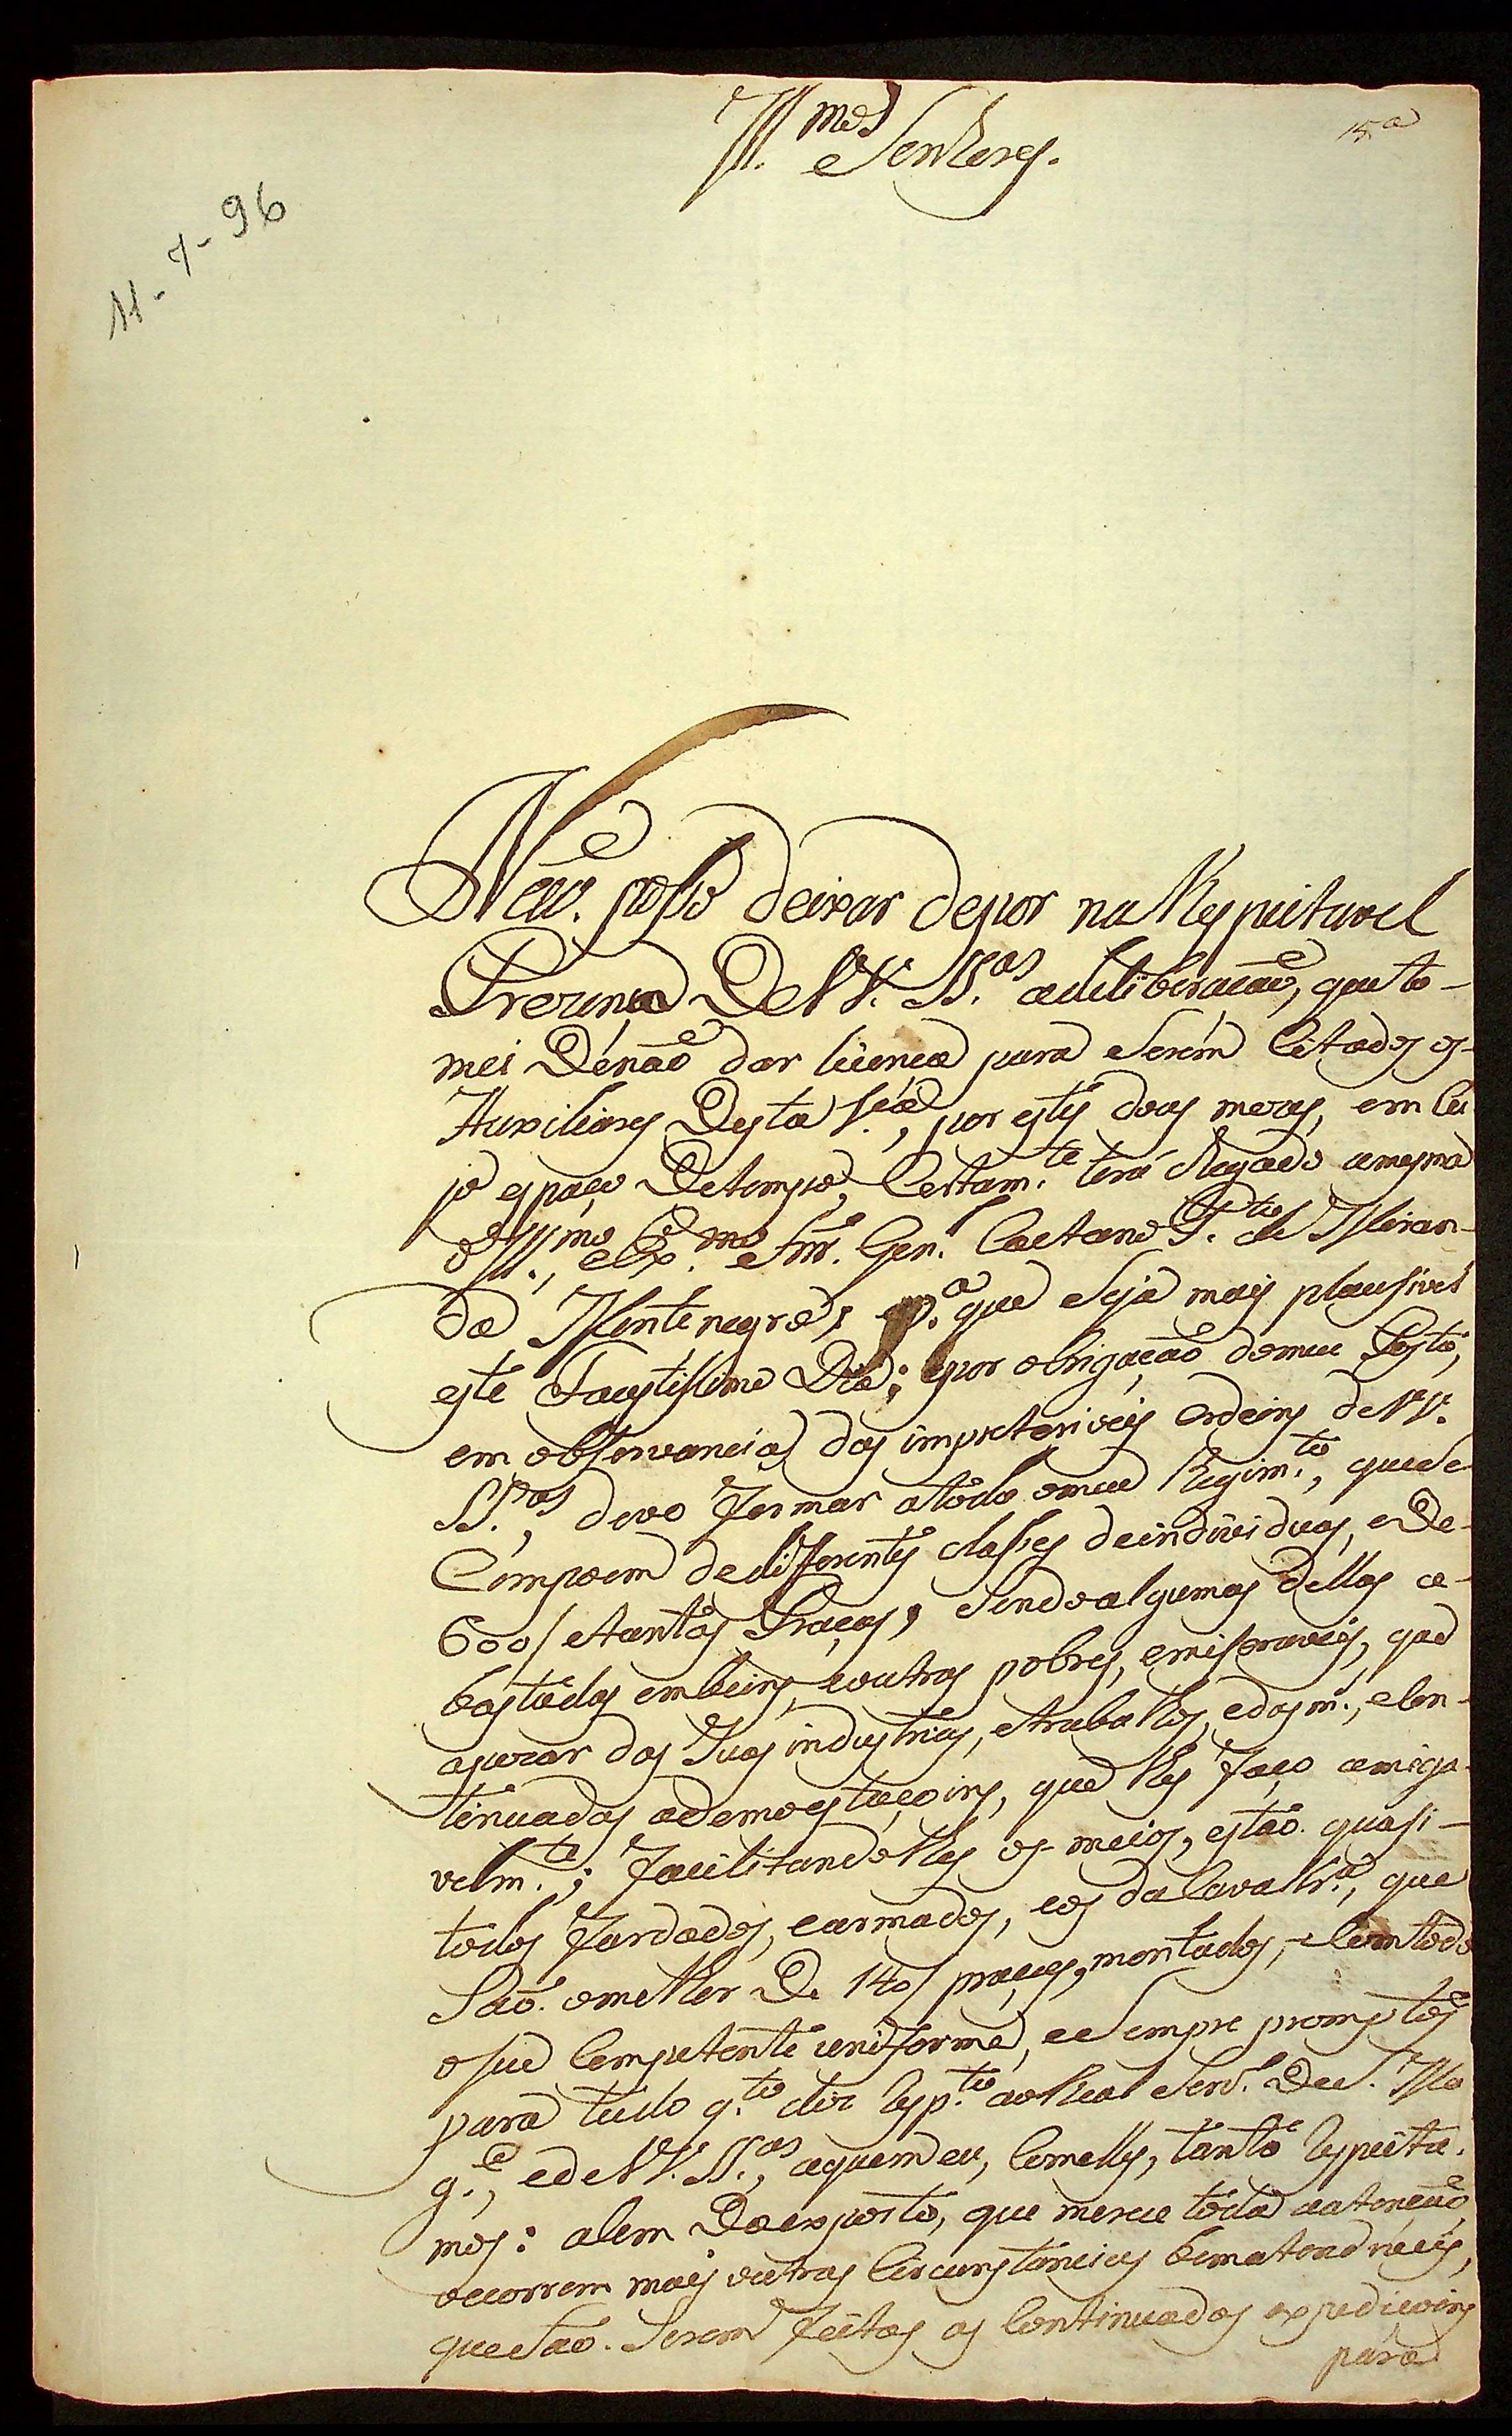 Ill.mos Senhores.
15a
11-7-96
Não posso deixar depor na Respeitavel
Prezença De V.V. SS.as adeliberação, que to-
mei Denão dar licença para Serem Citados os
Auxiliares Desta V.a, por estes dous mezes, em Cu
jo espaço Detempo, Certam.te terá chegado amesma
o Ill.mo, e Ex.mo Snr. Gen.l Caetano P.to de Miran-
da Montenegro; p.a que Seja mais plausivel
este Faustissimo Dia; epor obrigação domeu Posto,
em observancia das impreteriveis Ordeins de V.V.
SS.as, devo formar atodo omeu Regim.to, quese
Compoem dedifferentes classes deindividuos, eDe-
600/ etantas Praças, Sendoalgumas dellas a-
bastadas embeins, eoutras pobres, emiseraveis, que
apezar das Suas industrias, etrabalhos, edas m., eCon-
tinuadas ademoestaçoins, que lhes faço amiga-
velm.te; facilitandolhes os meios, estão quasi-
todos fardados, earmados, eos da Cavalhr.a, que
São omelhor De 140/ praças, montados, eComtodo
oSeu Competente uniforme, eeSempre promptos
para tudo q.to diz resp.to aoReal Serv.o De S. Ma
g.e, ede V.V. SS.as, aquemeu, Comelles, tanto respeita-
mos: alem Doexposto, que merece toda aatenção,
occorrem mais outras Circunstancias bematendiveis,
queSão Serem feitas as Continuadas expediçoins
para